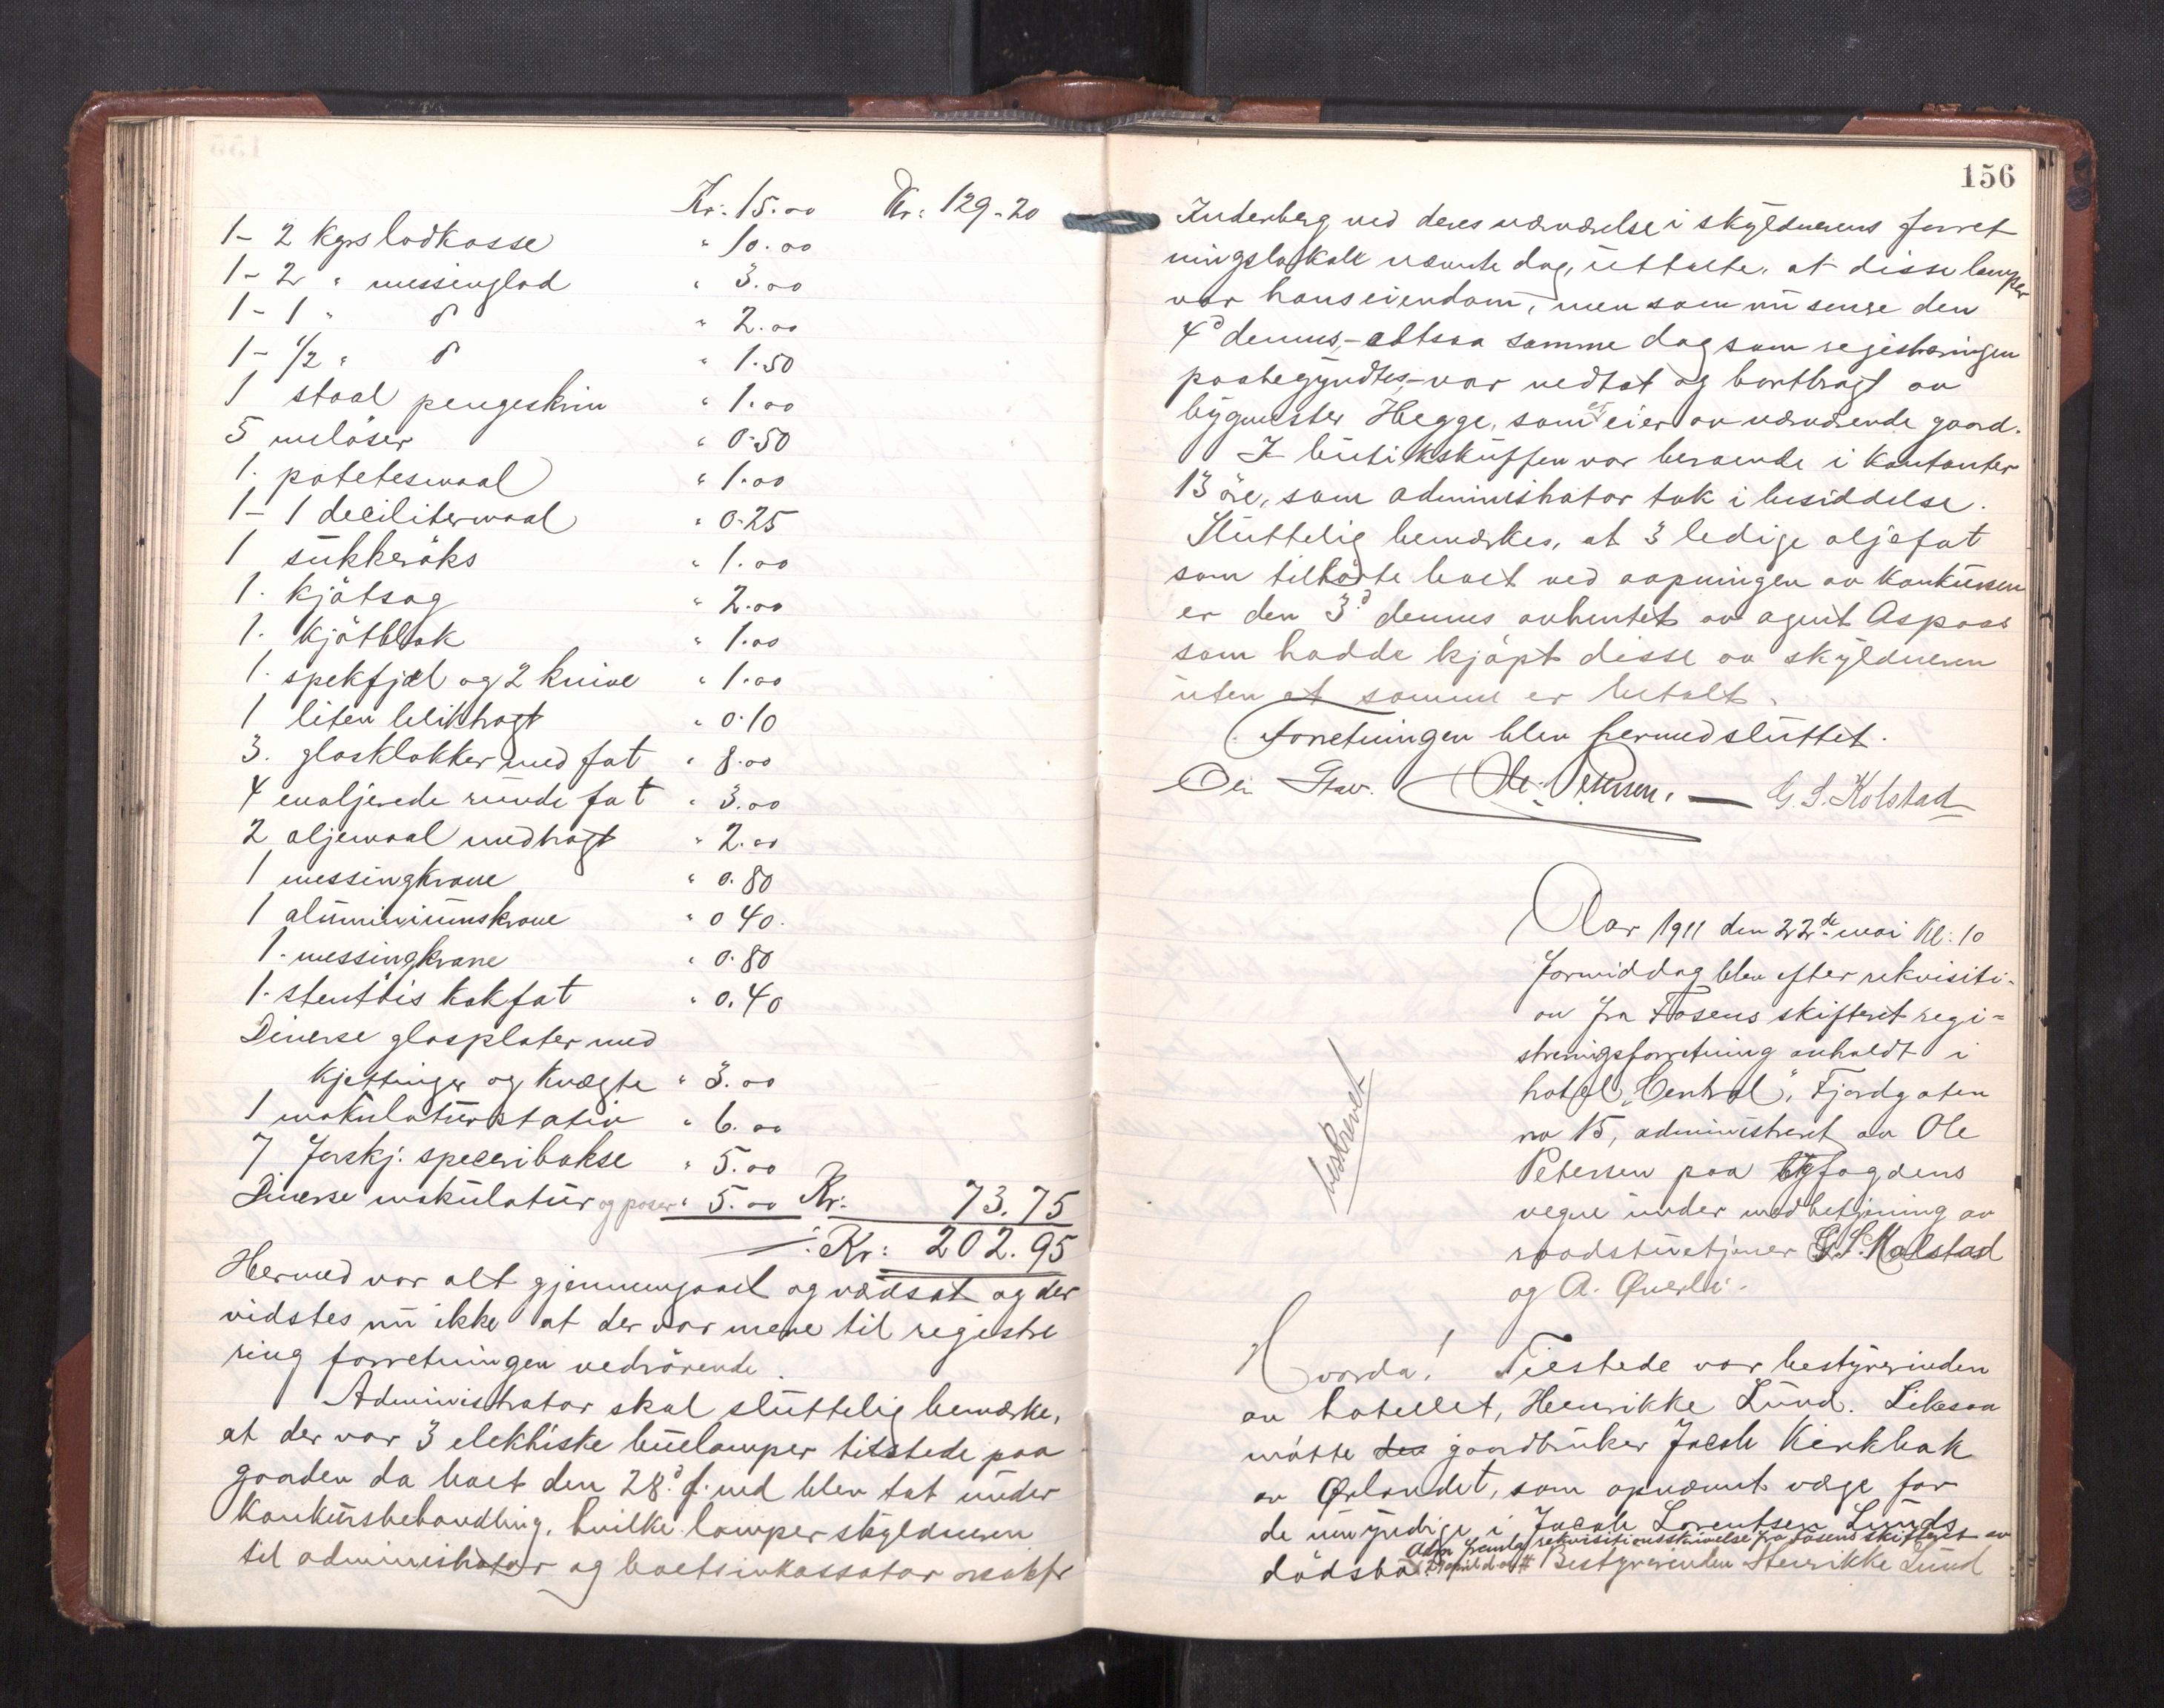 Kr: 15.00 Kr: 129.20
1 - 2 kgrs lodkasse " 10.00
1 - 2 " messinglod " 3.00
1 - 1 " do " 2.00
1 - 1/2 " do " 1.50
1 staal pengeskrin " 1.00
5 muslöser " 0.50
1. potetesmaal " 1.00
1 - 1 decilitermaal " 0.25
1 sukkeröks " 1.00
1. kjötsag " 2.00
1. kjötblok " 1.00
1. spekfjæl og 2 knive " 1.00
1 liten bliktragt " 0.10
3. glasklokker med fat " 8.00
4 emaljerede runde fat " 3.00
2 oljemaal med tragt " 2.00
1 messingkrane " 0.80
1 aluminiumskrane " 0 40.
1. messingkrane " 0.80
1. stentöis kakfat " 0.40
Diverse glasplater med
kjettinger og knægte " 3.00
1 makulaturstativ " 6.00
7 forskj: speceribokse " 5.00
Diverse makulatur og poser " 5.00 Kr: 73.75
Kr: 202.95
Hermed var alt gjennemgaaet og værdsat og der
vidstes nu ikke at der var mere til registre
ring forretningen vedrörende.
Administrator skal sluttelig bemærke,
at der var 3 elektriske buelamper tilstede paa
gaarden da boet den 28d f. md blev tat under
konkursbehandling, hvilke lamper skyldneren
til administrator og boetsinkassator
156
Inderberg ved deres nærværelse i skyldnerens forret
ningslokale nævnte dag, uttalte, at disse lamper
var hans eiendom, men som nu senere den
4d dennes, - altsaa samme dag som registreringen
paabegyndtes, - var nedtat og bortbragt av
bygmester Hegge, som er eier av nærværende gaard.
I butikskuffen var beroende i kontanter
13 öre, som administrator tok i besiddelse.
Sluttelig bemærkes, at 3 ledige oljefat
som tilhörte boet ved aapningen av konkursen
er den 3d dennes avhentet av agent Aspaas
som hadde kjöpt disse av skyldneren
uten at somme er betalt.
Forretningen blev hermed sluttet.
Ole Petersen. — G. S. Kolstad
Aar 1911 den 22de mai kl: 10
formiddag blev efter rekvisiti-
on fra Fosens skifteret regi-
streringsforretning avholdt i
hotel "Central", Fjordgaten
no 15, administreret av Ole
Petersen paa byfogdens
vegne under medbetjening av
raadstuetjener G. S. Kolstad
og A. Qverli.
beskrevet
Hvorda! Tilstede var bestyrerinden
av hotellet, Henrikke Lund. Likesaa
mötte den gaardbruker Jacob Kirkbak
av Ørlandet, som opnævnt væge for
de umyndige i Jacob Lorentsen Lunds
Adm fremla rekvisitionsskrivelse fra Fosens skifteret av
dödsbo. 29 april d. a. # Bestyrerinden Henrikke Lund